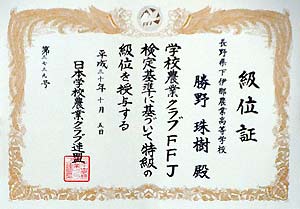 級位証
長野県下伊那農業高等学校
勝野 珠樹 殿
学校農業クラブFFJ
検定基準に基づいて特級の
級位を授与する
平成三十年十月五日
日本学校農業クラブ連盟